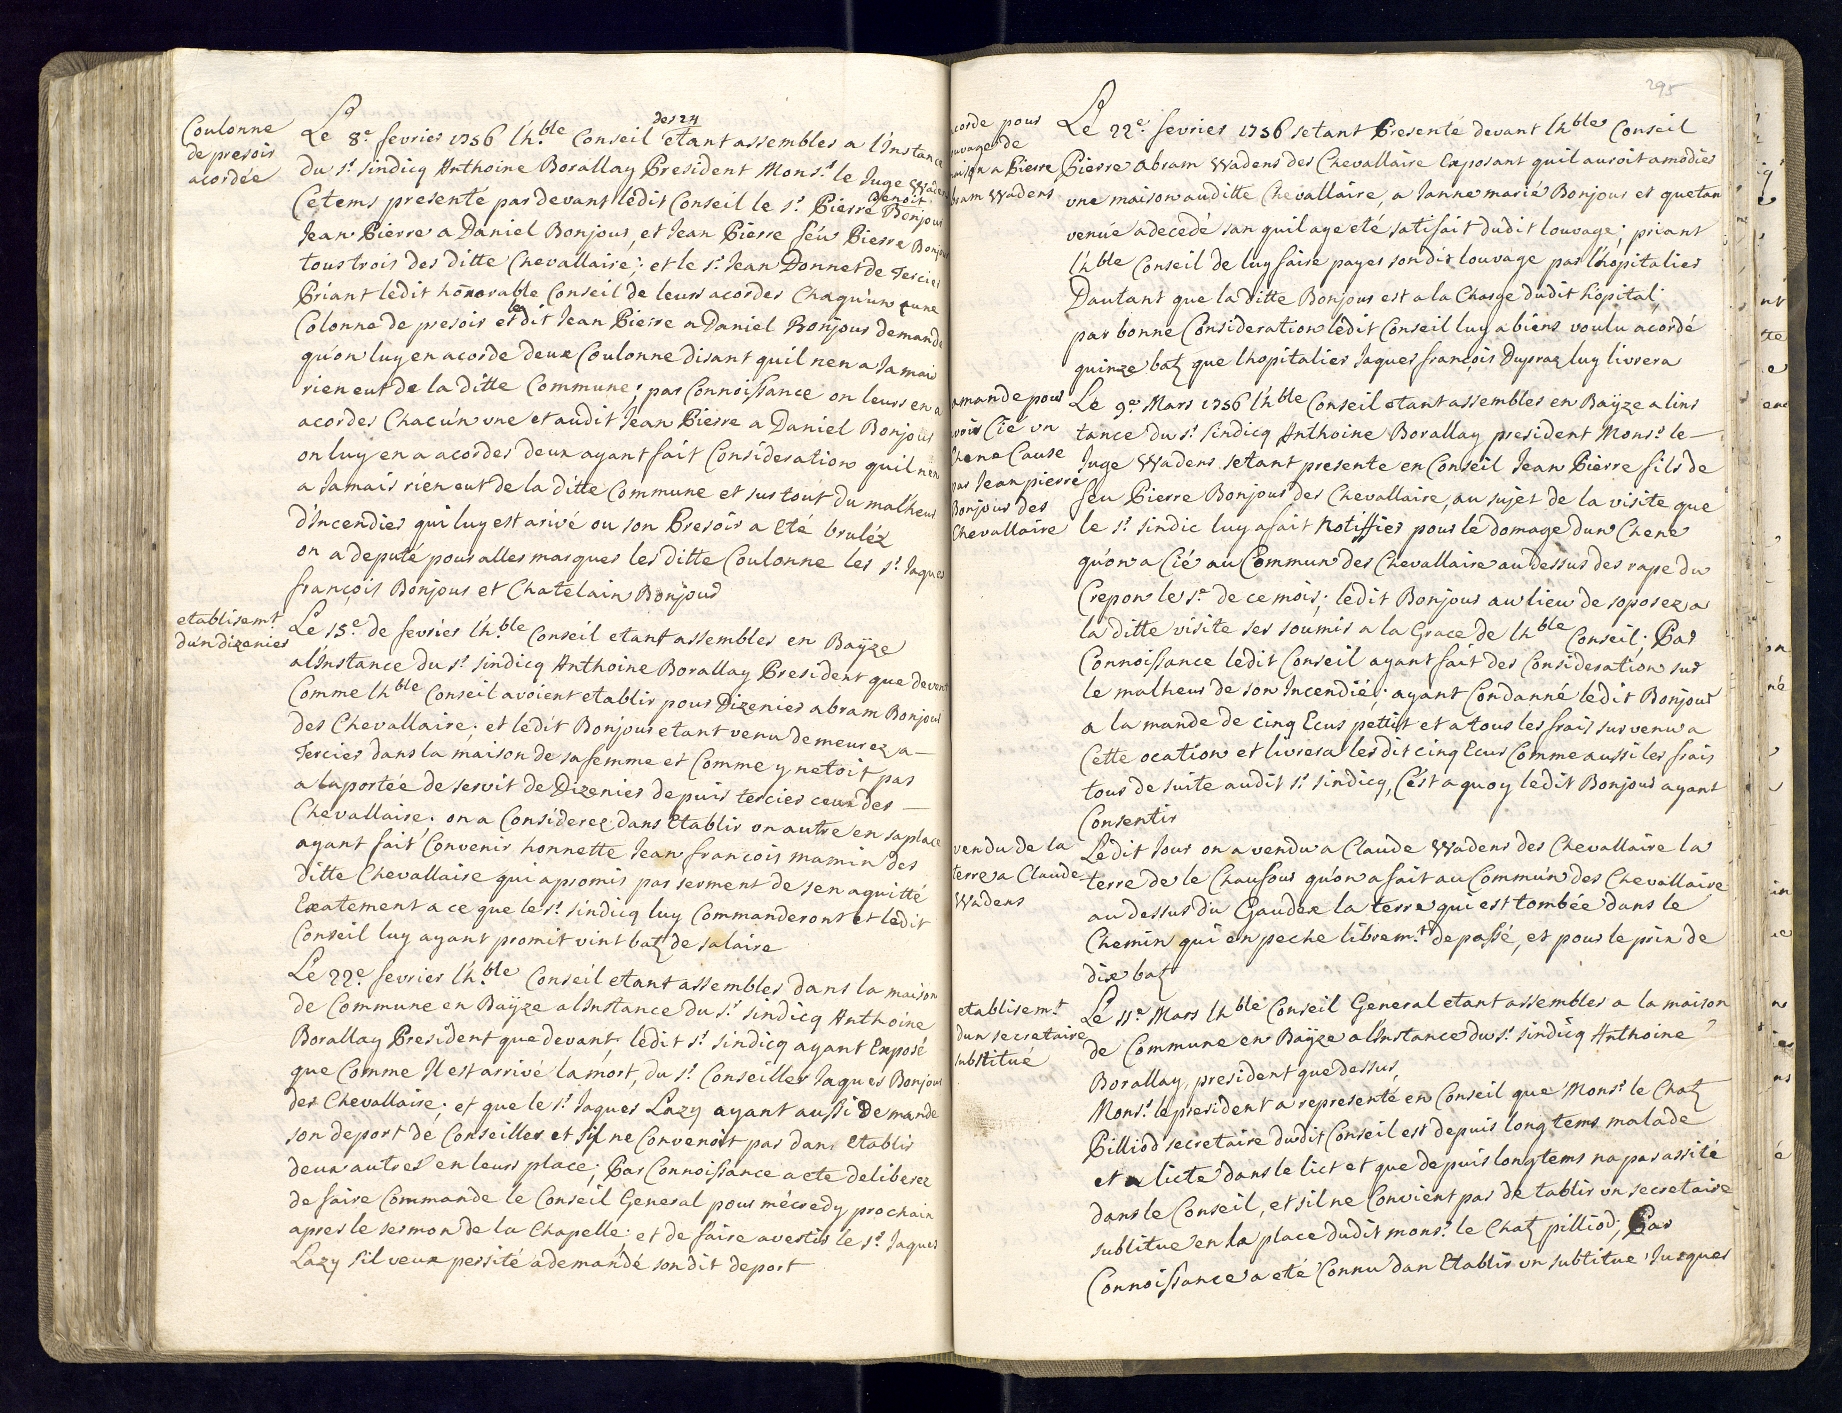 Coulonne
de presoir
acordée
Le 8.e fevrier 1756 l'h.ble Conseil des 24 etant assembles a l'Instance
du s.r sindicq Anthoine Borallay President Mons.r le Juge Wadens
Cetems presente par devant ledit Conseil le s.r Pierre Benoit Bonjour
Jean Pierre a Daniel Bonjour, et Jean Pierre féu Pierre Bonjour
tous trois des ditte Chevallaire; et le s.r Jean Donnet de Tercier
Priant ledit honorable Conseil de leurs acorder Chaqu'un une
Colonne de presoir et le dit Jean Pierre a Daniel Bonjour demande
qu'on luy en acorde deux Coulonne disant quil nen a Jamais
rien eut de la ditte Commune; par Connoissance on leurs en a
acorder Chacu'n une et audit Jean Pierre a Daniel Bonjour
on luy en a acordes deux ayant fait Considération quil nen
a Jamais rien eut de la ditte Commune et sur tout du malheur
d'Incendier qui luy est arivé ou son Presoir a Eté brulèz
on a deputé pour aller marquer les ditte Coulonne les s.r Jaques
françois Bonjour et Chatelain Bonjour
etablisem.t
dun dizenier
Le 15.e de fevrier l'h.ble Conseil etant assembles en Baÿze
a l'Instance du s.r sindicq Anthoine Borallay President que devent
Comme lh.ble Conseil avoient etablir pour Dizenier abram Bonjour
des Chevallaire; et lédit Bonjour etant venu demeurez a —
Tercier dans la maison de sa femme et Comme y netoit pas
a la portée de servit de Dizenier depuis tercier ceux des —
Chevallaire. on a Considerez dans Etablir un autre en sa place
ayant fait Convenir honnette Jean francois mamin des
ditte Chevallaire qui a promis par serment de sen aquitté
Exatement a ce que le s.r sindicq luy Commanderont et lédit
Conseil luy ayant promit vint batz de salaire
Le 22.e fevrier l'h.ble Conseil etant assembles dans la maison
de Commune en Baÿze a lInstance du s.r sindicq Anthoine
Borallay President que devant, ledit s.r sindicq ayant Exposé
que Comme Il est arrivé la mort, du s.r Conseiller Jaques Bonjour
des Chevallaire; et que le s.r Jaques Lazy ayant aussi Demande
son deport de Conseiller et sil ne Convenoit pas dans Etablir
deux autres en leurs place; Par Connoissance a ete deliberez
de faire Commande le Conseil General pour mécredy prochain
apres le sermon de la Chapelle et de faire avertir le s.r Jaques
Lazy sil veux persité a demandé son dit deport
295
acorde pour
louvage de
maison a Pierre
abram Wadens
Le 22.e fevrier 1756 setant Presenté devant l'h.ble Conseil
Pierre Abram Wadens des Chevallaire Exposant quil auroit amodier
une maison auditte Chevallaire, a Janne marié Bonjour et quetan
venüe a decedé san quil aye eté satifait dudit louvage; priant
l'h.ble Conseil de luy faire payer son dit louvage par l'hopitalier
Dautant que la ditte Bonjour est a la Charge dudit hôpital;
par bonne Consideration lédit Conseil luy a biens voulu acordé
quinze batz que lhopitalier Jaques françois Dupraz luy livrera
amande pour
avoir Cié un
Chene Cause
par Jean pierre
Bonjour des
Chevallaire
Le 9.e Mars 1756 l'h.ble Conseil etant assembles en Baÿze a lins
tance du s.r sindicq Anthoine Borallay president Mons.r le —
Juge Wadens setant presente en Conseil Jean Pierre fils de
feu Pierre Bonjour des Chevallaire, au sujet de la visite que
le s.r sindic luy a fait Notiffier pour le domage dun Chene
qu'on a Cié au Commun des Chevallaire au dessus des rape du
Crepon le 5.e de ce mois; lédit Bonjour au lieu de soposez a
la ditte visite ses soumis a la Grace de lh.ble Conseil; Par
Connoissance lédit Conseil ayant fait des Consideration sur
le malheur de son Incendié; ayant Condanné lédit Bonjour
a la mande de cinq Ecus pettit et a tous les frais survenu a
Cette ocation et livrera lesdit cinq Ecus Comme aussi les frais
tous de suite audit s.r sindicq, C'est a quoy ledit Bonjour ayant
Consentir
vendu de la
terre a Claude
Wadens
Ledit Jour on a vendu a Claude Wadens des Chevallaire la
terre de le Chaufour qu'on a fait au Commu'n des Chevallaire
au dessus du Gaudex la terre qui est tombée dans le
Chemin qui enpeche librem.t de passé, et pour le prix de
dix batz
etablisem.t
dun secretaire
subtitué
Le 11.e Mars lh.ble Conseil General etant assembles a la maison
de Commune en Baÿze a lInstance du s.r sindicq Anthoine
Borallay, president que dessus,
Mons.r le president a representé en Conseil que Mons.r le Chatz
Pilliod secretaire dudit Conseil est depuis long tems malade
et alicté dans le lict et que depuis longtems na pas assité
dans le Conseil, et sil ne Convient pas de tablir un secretaire
subtitue en la place dudit mons.r le Chatz pilliod; Par
Connoissance a eté Connu dan Etablir un subtitue Jusques